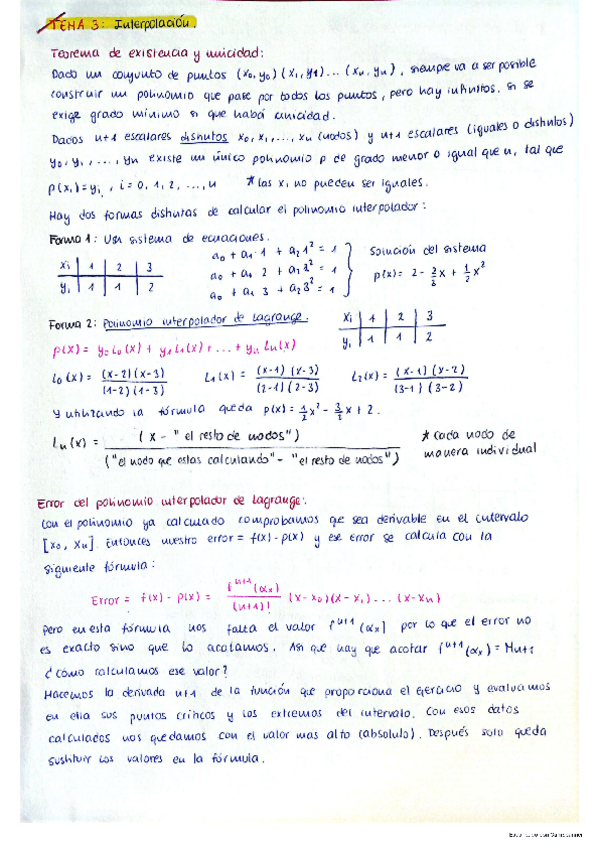 TEMA 3: Interpolación.
Teorema de existencia y unicidad:
Dado un conjunto de puntos (x₀,y₀) (x₁,y₁) ... (xₙ,yₙ), siempre va a ser posible
construir un polinomio que pase por todos los puntos, pero hay infinitos. Si se
exige grado mínimo si que habrá unicidad.
Dados n+1 escalares distintos x₀, x₁, ..., xₙ (nodos) y n+1 escalares (iguales o distintos)
y₀, y₁, ..., yₙ existe un único polinomio p de grado menor o igual que n, tal que
p(xᵢ)=yᵢ, i = 0, 1, 2, ..., n * las xᵢ no pueden ser iguales.
Hay dos formas distintas de calcular el polinomio interpolador:
Forma 1: Un sistema de ecuaciones.
xᵢ | 1 | 2 | 3
yᵢ | 1 | 1 | 2
a₀ + a₁ 1 + a₂ 1² = 1
a₀ + a₁ 2 + a₂ 2² = 1
a₀ + a₁ 3 + a₂ 3² = 1
Solución del sistema
p(x) = 2 - 3/2 x + 1/2 x²
Forma 2: Polinomio interpolador de Lagrange.
xᵢ | 1 | 2 | 3
yᵢ | 1 | 1 | 2
p(x) = y₀ L₀(x) + y₁ L₁(x) + ... + yₙ Lₙ(x)
L₀(x) = (x-2)(x-3) / (1-2)(1-3) L₁(x) = (x-1)(x-3) / (2-1)(2-3) L₂(x) = (x-1)(x-2) / (3-1)(3-2)
Y utilizando la fórmula queda p(x) = 1/2 x² - 3/2 x + 2.
Lₙ(x) = (x - "el resto de nodos") / ("el nodo que estas calculando" - "el resto de nodos")
* Cada nodo de
manera individual
Error del polinomio interpolador de Lagrange:
Con el polinomio ya calculado comprobamos que sea derivable en el intervalo
[x₀, xₙ]. Entonces nuestro error = f(x) - p(x) y ese error se calcula con la
siguiente fórmula:
Error = f(x) - p(x) = fⁿ⁺¹(αₓ) / (n+1)! (x-x₀)(x-x₁)...(x-xₙ)
Pero en esta fórmula nos falta el valor fⁿ⁺¹(αₓ) por lo que el error no
es exacto sino que lo acotamos. Asi que hay que acotar fⁿ⁺¹(αₓ) = Mₙ₊₁
¿Cómo calculamos ese valor?
Hacemos la derivada n+1 de la función que proporciona el ejercicio y evaluamos
en ella sus puntos críticos y los extremos del intervalo. Con esos datos
calculados nos quedamos con el valor mas alto (absoluto). Después solo queda
sustituir los valores en la fórmula.